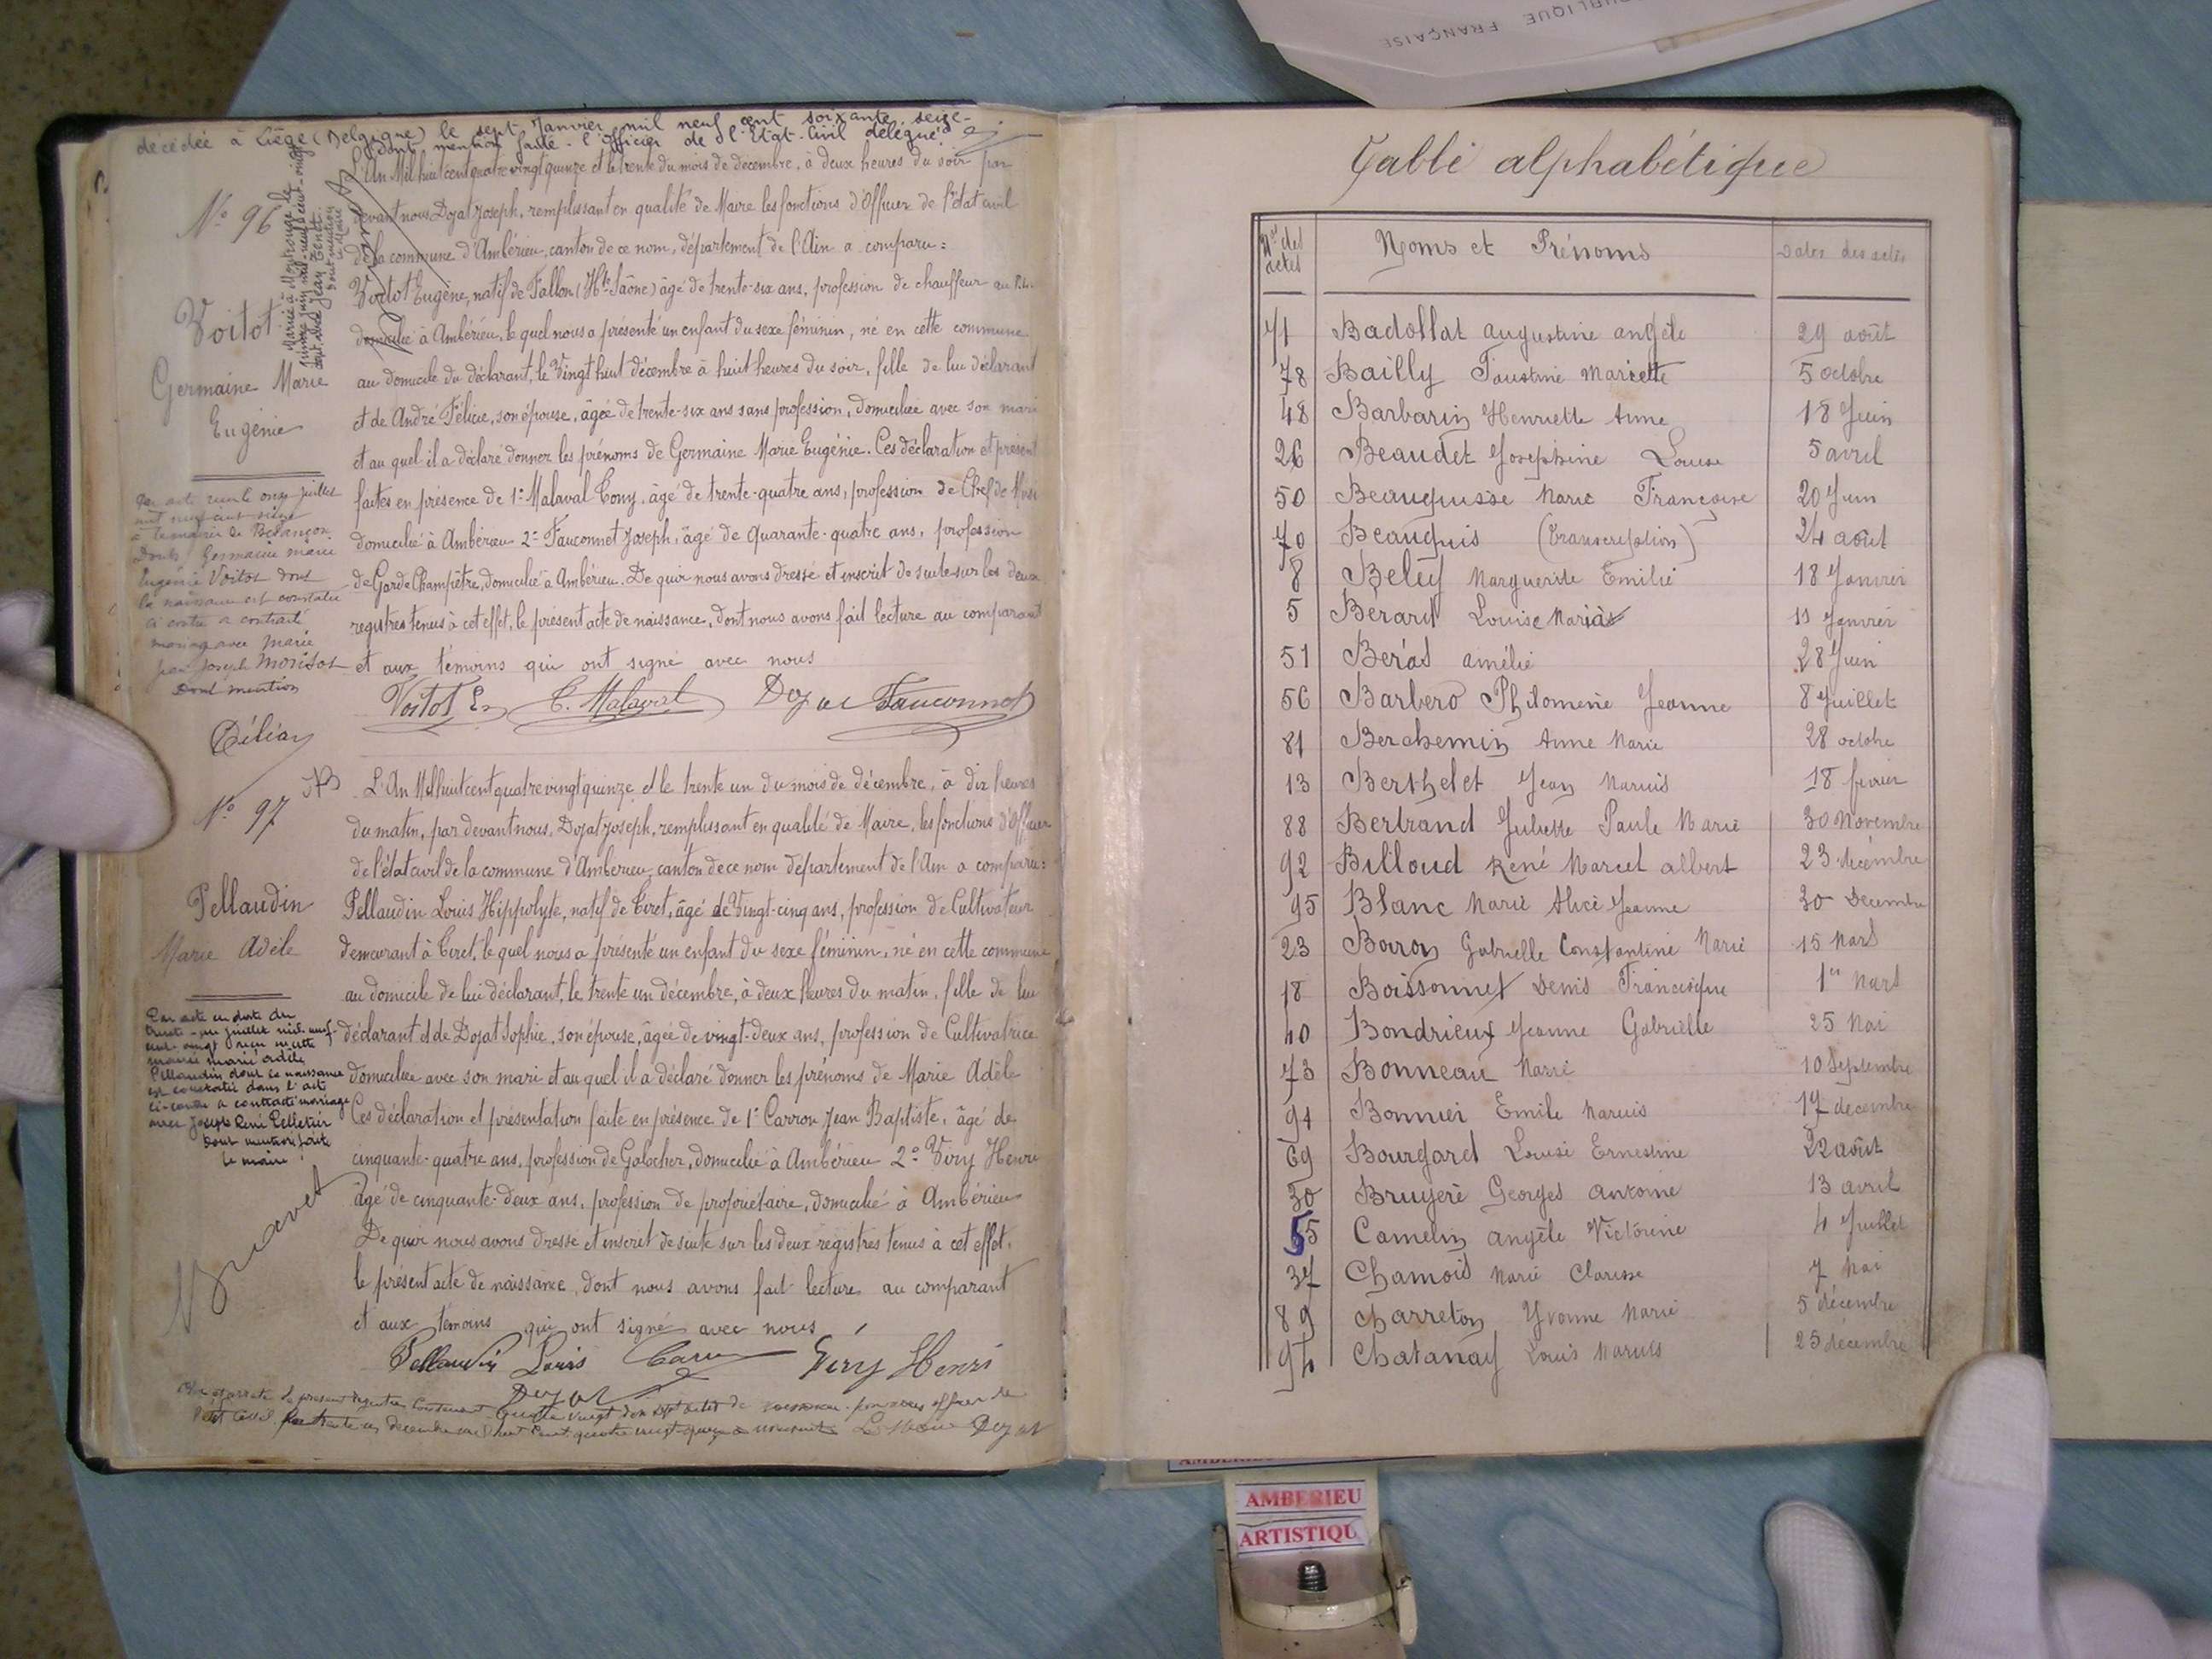 décédée à Liège (Belgique) le sept Janvier mil neuf cent soixante seize
Dont mention faite. l'Officier de l'Etat-Civil délégué
N° 96
Voitot
Germaine Marie
Eugénie
L'An Mil huit cent quatre vingt quinze et le trente du mois de décembre, à deux heures du soir par
devant nous Dojat Joseph, remplissant en qualité de Maire les fonctions d'Officier de l'état civil
de la commune d'Ambérieu, canton de ce nom, département de l'Ain a comparu :
Voitot Eugène, natif de Fallon (Hte Saône) âgé de trente-six ans, profession de chauffeur au
domicilié à Ambérieu, le quel nous a présenté un enfant du sexe féminin, né en cette commune
au domicile du déclarant, le Vingt huit décembre à huit heures du soir, fille de lui déclarant
et de André Félicie, son épouse, âgée de trente-six ans sans profession, domiciliée avec son mari
et au quel il a déclaré donner les prénoms de Germaine Marie Eugénie. Ces déclaration et présent
faites en présence de 1° Malaval Tony, âgé de trente-quatre ans, profession de Chef de
domicilié à Ambérieu 2° Fauconnet Joseph, âgé de Quarante-quatre ans, profession
de Garde Champêtre, domicilié à Ambérieu. De quoi nous avons dressé et inscrit de suite sur les deux
registres tenus à cet effet, le présent acte de naissance, dont nous avons fait lecture au comparant
et aux témoins qui ont signé avec nous
Par acte reçu le onze juillet
mil neuf cent seize
à la mairie de Besançon
Doubs Germaine Marie
Eugénie Voitot dont
la naissance est constatée
ci contre a contracté
mariage avec Marie
Jean Joseph
Dont mention
Voitot E. T. Malaval Dojat Fauconnet
N° 97
Pellaudin
Marie Adèle
L'An Mil huit cent quatre vingt quinze et le trente un du mois de décembre, à dix heures
du matin, par devant nous, Dojat Joseph, remplissant en qualité de Maire, les fonctions d'Officier
de l'état civil de la commune d'Ambérieu, canton de ce nom département de l'Ain a comparu :
Pellaudin Louis Hippolyte, natif de Tiret, âgé de Vingt-cinq ans, profession de Cultivateur
demeurant à Tiret, le quel nous a présenté un enfant du sexe féminin, né en cette commune
au domicile de lui déclarant, le trente un décembre, à deux heures du matin, fille de lui
déclarant et de Dojat Sophie, son épouse, âgée de vingt-deux ans, profession de Cultivatrice
domiciliée avec son mari et au quel il a déclaré donner les prénoms de Marie Adèle
Ces déclaration et présentation faite en présence de 1° Carron Jean Baptiste, âgé de
cinquante-quatre ans, profession de Galocher, domicilié à Ambérieu 2° Viry Henri
âgé de cinquante-deux ans, profession de propriétaire, domicilié à Ambérieu
De quoi nous avons dressé et inscrit de suite sur les deux registres tenus à cet effet,
le présent acte de naissance, dont nous avons fait lecture au comparant
et aux témoins qui ont signé avec nous
Par acte en date du
trente-un juillet mil neuf
cent vingt
Marie Adèle
Pellaudin dont la naissance
est constatée dans l'acte
ci-contre a contracté mariage
avec Joseph René Pelletier
Dont mention faite
le maire
Pellaudin Louis Carron Viry Henri
Dojat
Table alphabétique
Nos des actes Noms et Prénoms Dates des actes
71 Badollat Augustine Angèle 29 août
78 Bailly Faustine Mariette 5 octobre
48 Barbarin Henriette Anne 18 Juin
26 Beaudet Joséphine Louise 5 avril
50 Beauquisse Marie Françoise 20 Juin
70 Beauquis (Transcription) 24 août
8 Beley Marguerite Emilie 18 Janvier
5 Bérard Louise Maria 11 Janvier
51 Béras amélie 28 Juin
56 Barbero Philomène Jeanne 8 Juillet
81 Berchemin Anne Marie 28 octobre
13 Berthelet Jean Marius 18 février
88 Bertrand Juliette Paule Marie 30 Novembre
92 Billoud René Marcel albert 23 décembre
95 Blanc Marie Alice Jeanne 30 Décembre
23 Boron Gabrielle Constantine Marie 15 Mars
18 Boissonnet Denis Francisque 1er Mars
40 Bondrieux Jeanne Gabrielle 25 Mai
73 Bonneau Marie 10 Septembre
91 Bonnier Emile Marius 17 décembre
69 Bourgard Louise Ernestine 22 août
30 Bruyère Georges Antoine 13 avril
55 Camelin Angèle Victorine 4 Juillet
37 Chamoid Marie Clarisse 7 Mai
89 Charreton Yvonne Marie 5 décembre
94 Chatanay Louis Marius 25 décembre
AMBERIEU
ARTISTIQU